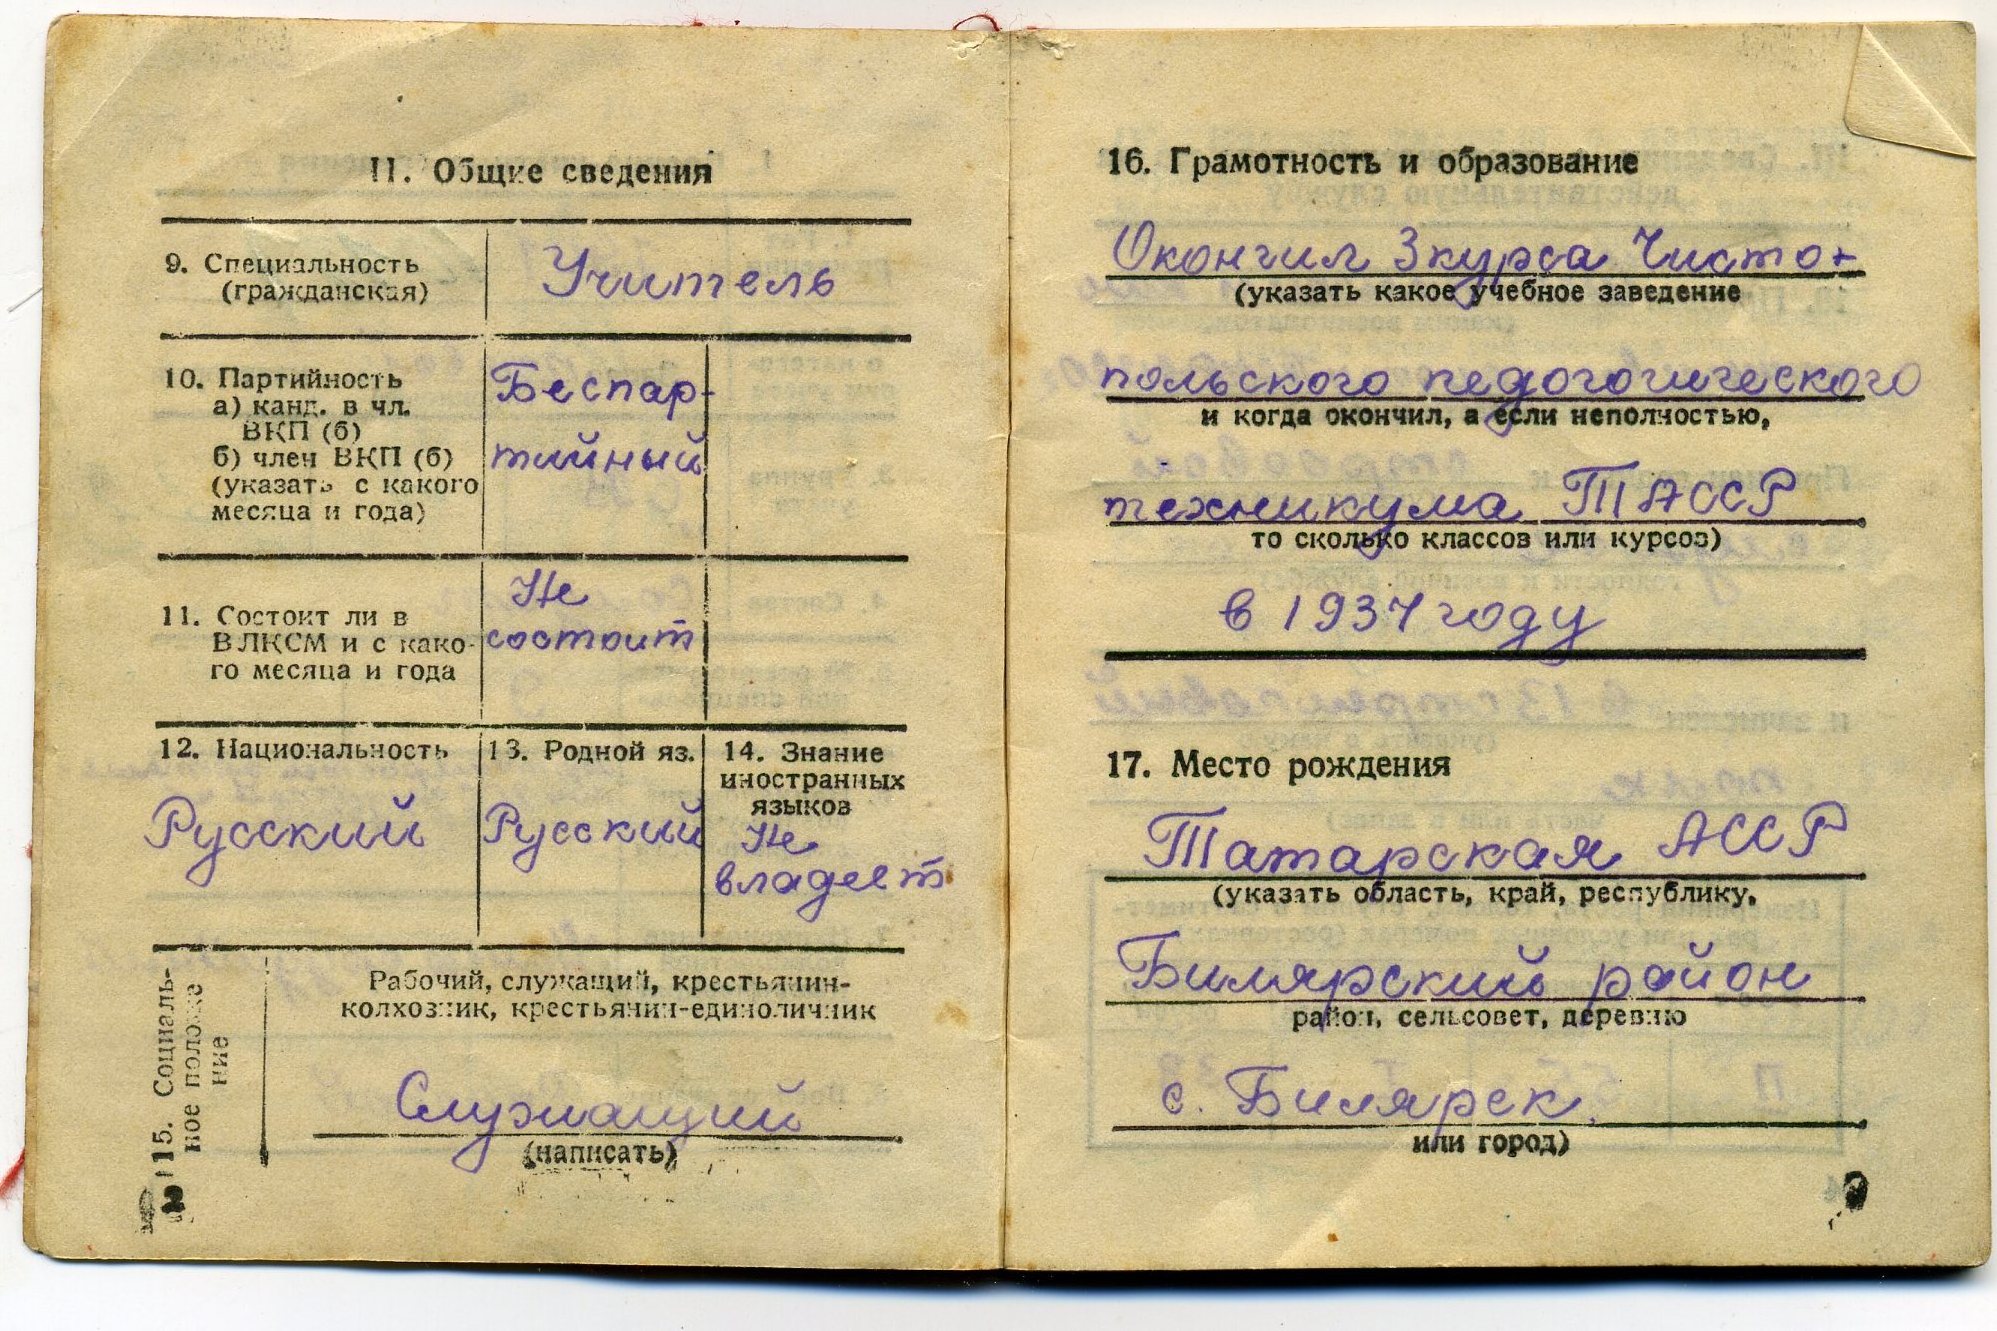 II. Общие сведения
9. Специальность
(гражданская)
Учитель
10. Партийность
а) канд. в чл.
ВКП (б)
б) член ВКП (б)
(указать с какого
месяца и года)
Беспар-
тийный
11. Состоит ли в
ВЛКСМ и с како-
го месяца и года
Не
состоит
12. Национальность
Русский
13. Родной яз.
Русский
14. Знание
иностранных
языков
Не
владеет
15. Социаль-
ное положе
ние
Рабочий, служащий, крестьянин-
колхозник, крестьянин-единоличник
Служащий
(написать)
2
16. Грамотность и образование
Окончил 3 курса Чисто-
(указать какое учебное заведение
польского педогогического
и когда окончил, а если неполностью,
техникума ТАССР
то сколько классов или курсов)
в 1937 году
17. Место рождения
Татарская АССР
(указать область, край, республику,
Билярский район
район, сельсовет, деревню
с. Билярск.
или город)